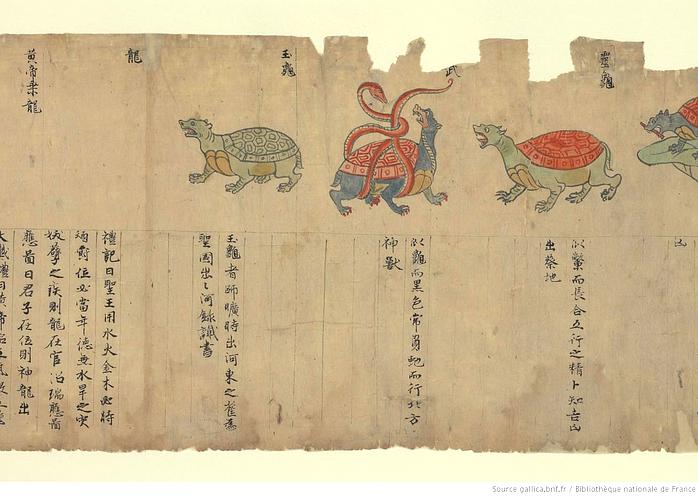 靈龜
似鱉而長合五行之精卜知吉凶
出蔡地
武
似龜而黑色常負虵而行北方
神獸
玉龜
玉龜者師曠時出河東之
聖國出之河錄讖書
龍
禮記曰聖王用水火金木必時
爵位必當年德無水旱之灾
妖孽之疾則龍在宮沼瑞應啚
應啚曰君子在位則神龍出
黄帝乘龍
大戴禮曰黄帝
Source gallica.bnf.fr / Bibliothèque nationale de France